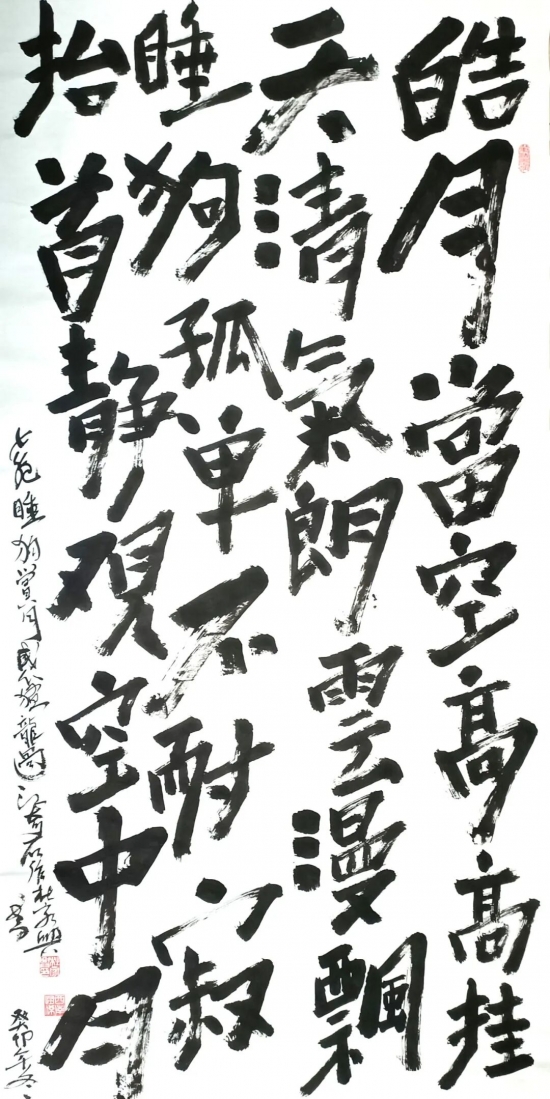 皓月當空高高挂
天清氣朗雲漫飄
睡狗孤单不耐寂
抬首静观空中月
七绝睡狗賞月
癸卯年冬